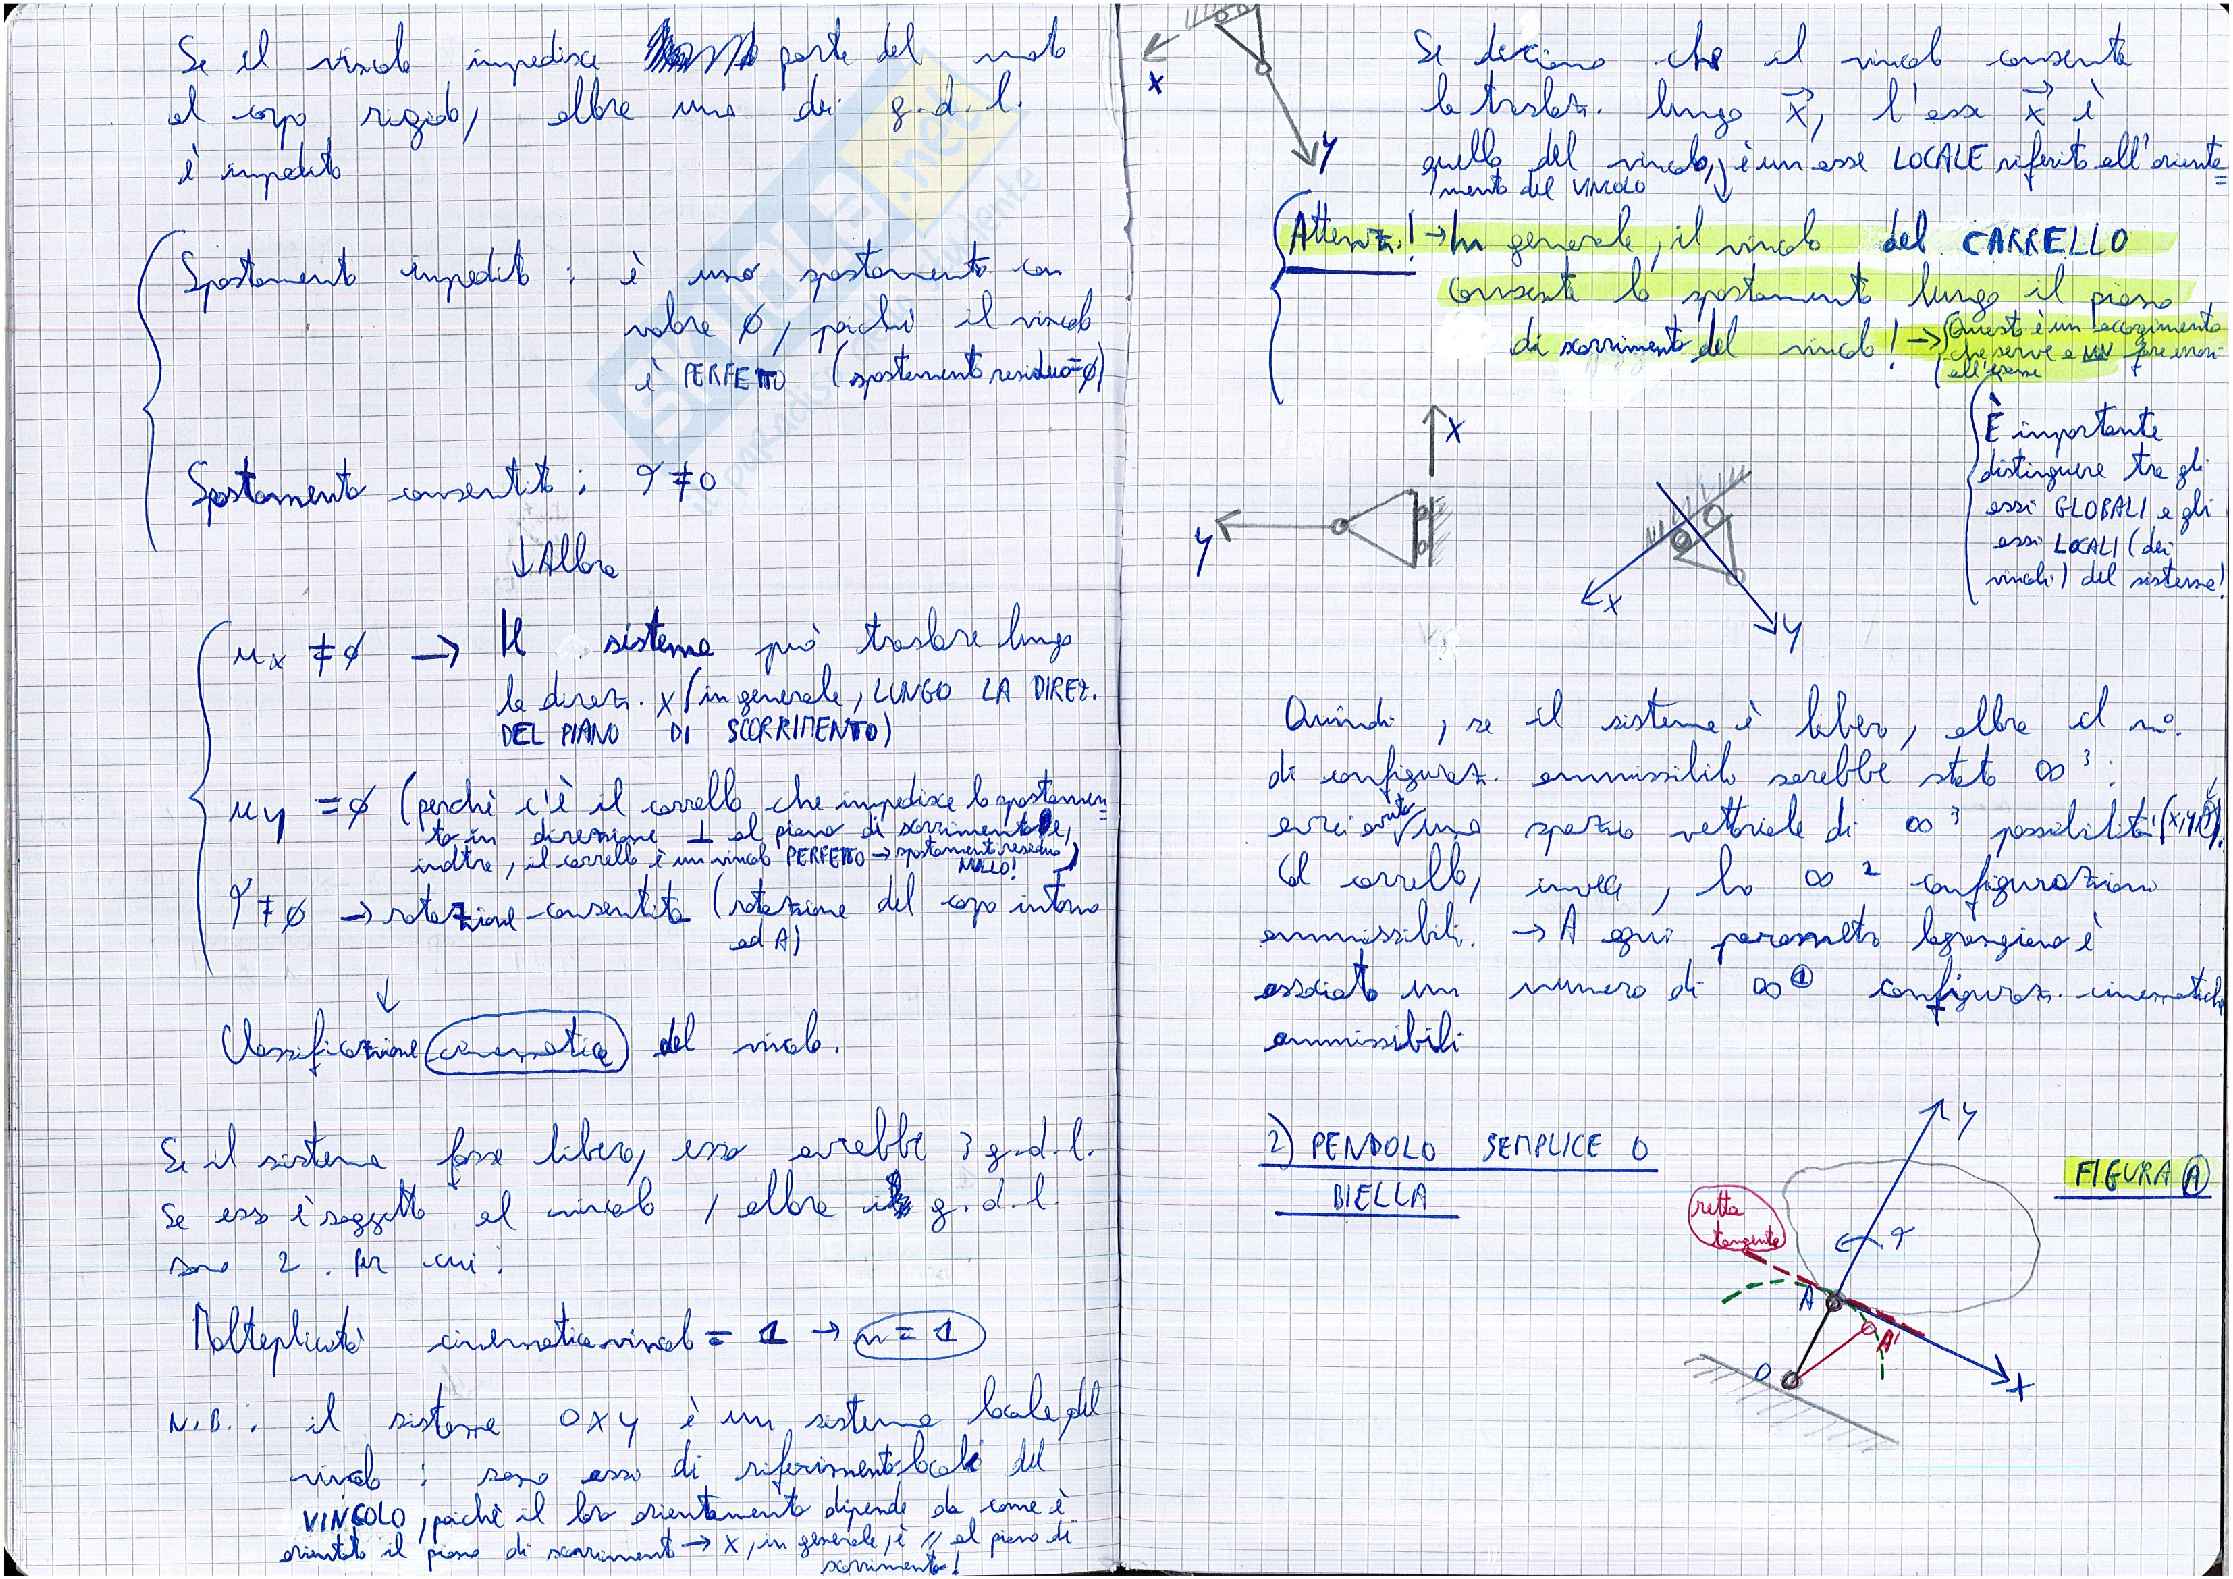 Se il vincolo impedisce parte del moto
al corpo rigido, allora uno dei g.d.l.
è impedito
Spostamento impedito : è uno spostamento con
valore ∅, poichè il vincolo
è PERFETTO (spostamento residuo=∅)
Spostamento consentito : φ ≠ 0
↓ Allora
ux ≠ ∅ → Il sistema può traslare lungo
la direz. x (in generale, LUNGO LA DIREZ.
DEL PIANO DI SCORRIMENTO)
uy = ∅ (perchè c'è il carrello che impedisce lo spostamen
to in direzione ⊥ al piano di scorrimento,
inoltre, il carrello è un vincolo PERFETTO → spostament. residuo
NULLO!)
φ ≠ ∅ → rotazione consentita (rotazione del corpo intorno
ad A)
↓
Classificazione cinematica del vincolo.
Se il sistema fosse libero, esso avrebbe 3 g.d.l.
Se esso è soggetto al vincolo, allora i g.d.l.
sono 2. Per cui :
Molteplicità cinematica vincolo = 1 → n = 1
N.B. : il sistema OXY è un sistema locale del
vincolo : sono assi di riferimento locali del
VINCOLO, poichè il loro orientamento dipende da come è
orientato il piano di scorrimento → x, in generale, è // al piano di
scorrimento!
x
y
Se diciamo che il vincolo consente
la traslaz. lungo x, l'asse x è
quello del vincolo, è un asse LOCALE riferito all'orienta
mento del VINCOLO
Attenz.! → In generale, il vincolo del CARRELLO
consente lo spostamento lungo il piano
di scorrimento del vincolo! → (Questo è un accorgimento
che serve a fare errori
all'esame
È importante
distinguere tra gli
assi GLOBALI e gli
assi LOCALI (dei
vincoli) del sistema!
x
y
x
y
Quindi, se il sistema è libero, allora il n°
di configuraz. ammissibili sarebbe stato ∞³ :
avrei avuto uno spazio vettoriale di ∞³ possibilità (x,y,φ).
Col carrello, invece, ho ∞² configurazioni
ammissibili. → A ogni parametro lagrangiano è
associato un numero di ∞¹ configuraz. cinematiche
ammissibili
2) PENDOLO SEMPLICE O
BIELLA
FIGURA A
retta
tangente
y
φ
A
A'
O
x